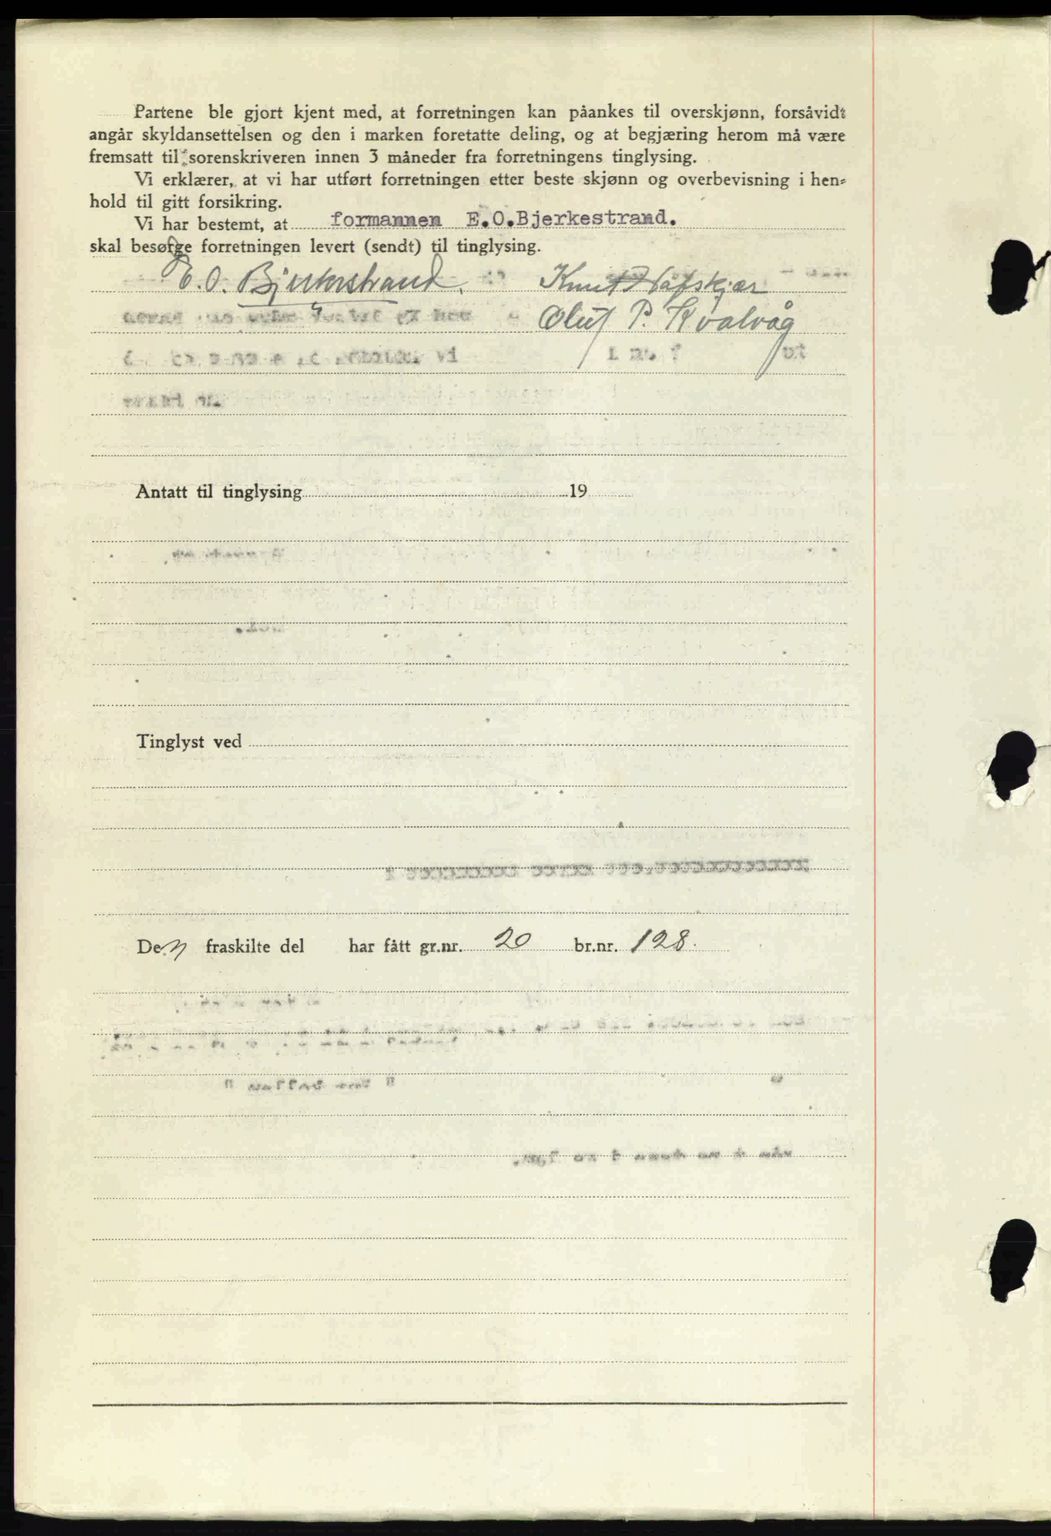 Partene ble gjort kjent med, at forretningen kan påankes til overskjønn, forsåvidt
angår skyldansettelsen og den i marken foretatte deling, og at begjæring herom må være
fremsatt til sorenskriveren innen 3 måneder fra forretningens tinglysing.
Vi erklærer, at vi har utført forretningen etter beste skjønn og overbevisning i hen-
hold til gitt forsikring.
Vi har bestemt, at formannen E.O.Bjerkestrand.
skal besørge forretningen levert (sendt) til tinglysing.
E. O. Bjerkestrand. Knut Nafskjær
Oluf P. Kvalvåg
Antatt til tinglysing 19
Tinglyst ved
Den fraskilte del har fått gr.nr. 20 br.nr. 128.